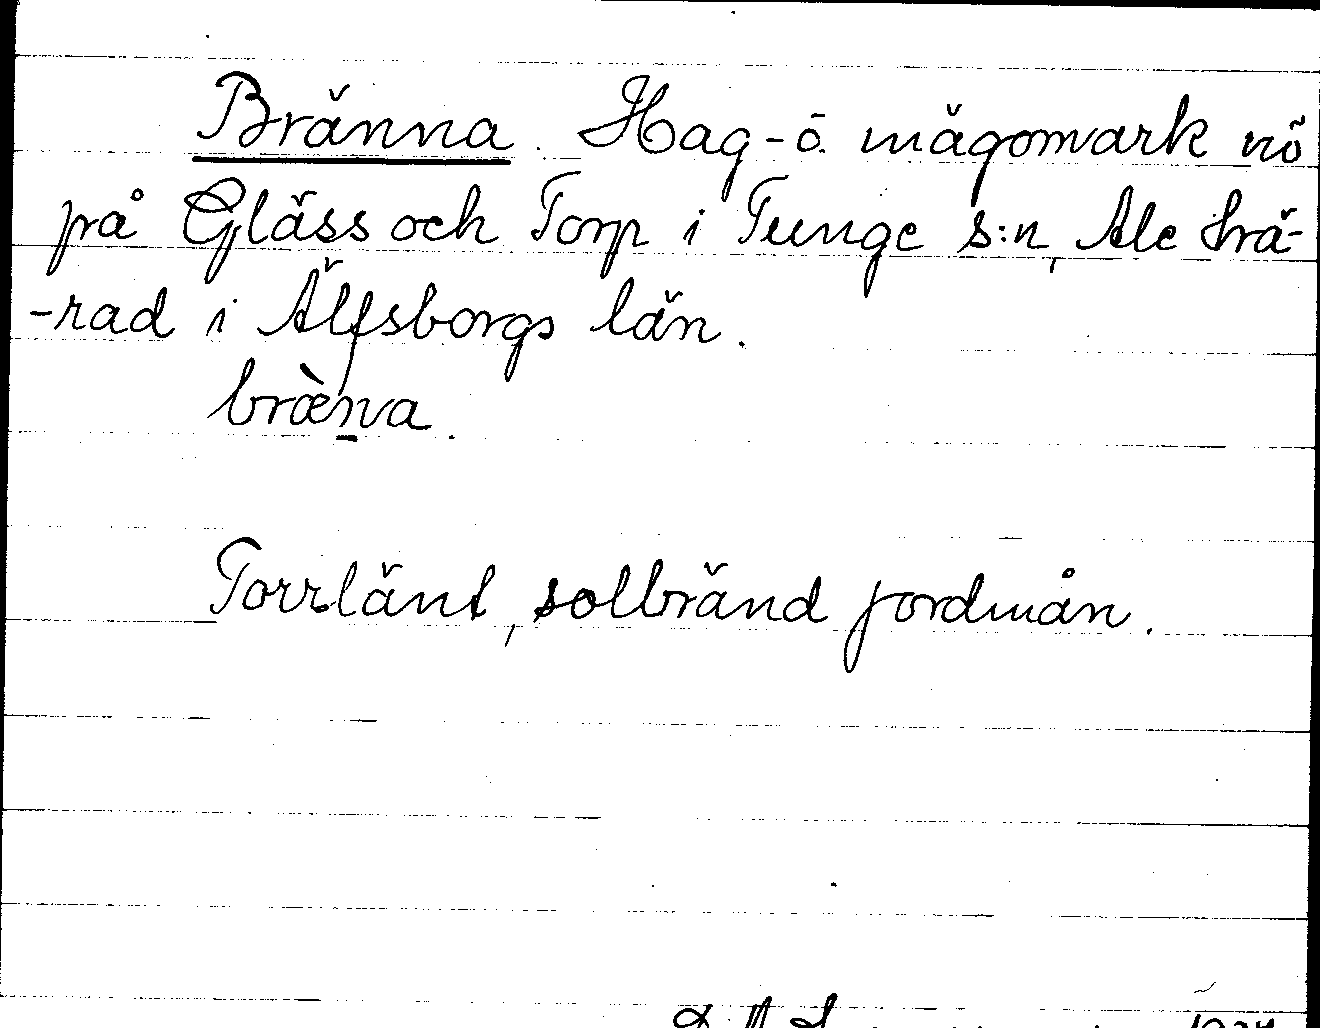 Bränna. Hag- ö. mägomark nö
på Gläss och Torp i Tunge s:n, Ale hä-
-rad i Älfsborgs län.
bræ̀na.
Torrlänt, solbränd jordmån.